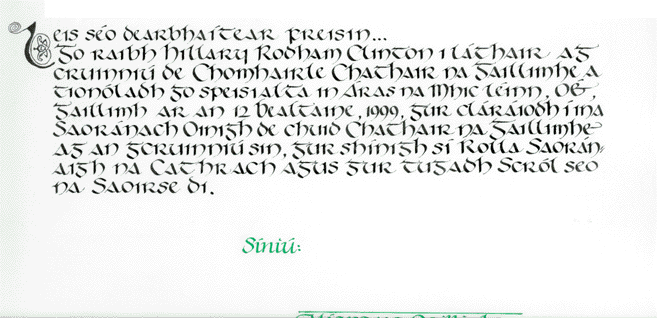 Leis séo dearbhaítear freisin...
go raibh Hillary Rodham Clinton i láthair ag
cruinniú de Chomhairle Chathair na Gaillimhe a
tionóladh go speisialta in Áras na Mhic Léinn, OÉ,
Gaillimh ar an 12 Bealtaine, 1999, gur cláráiodh í ina
Saoránach Oinigh de chuid Chathair na Gaillimhe
ag an gcruinniú sin, gur shínigh sí Rolla Saorán-
aigh na Cathrach agus gur tugadh Scról seo
na Saoirse di.
Síniú: